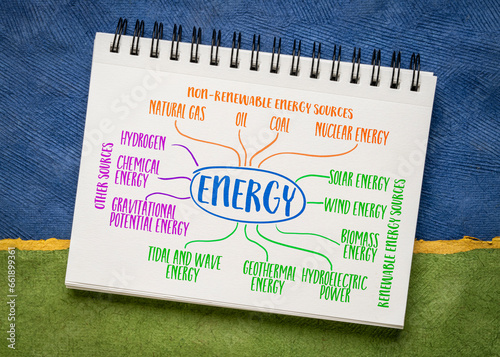 NON-RENEWABLE ENERGY SOURCES
NATURAL GAS
OIL
COAL
NUCLEAR ENERGY
HYDROGEN
CHEMICAL
ENERGY
GRAVTIATIONAL
POTENTIAL ENERGY
OTHER SOURCES
ENERGY
SOLAR ENERGY
WIND ENERGY
BIOMASS
ENERGY
RENEWABLE ENERGY SOURCES
TIDAL AND WAVE
ENERGY
GEOTHERMAL
ENERGY
HYDROELECTRIC
POWER
Adobe Stock | #661899361